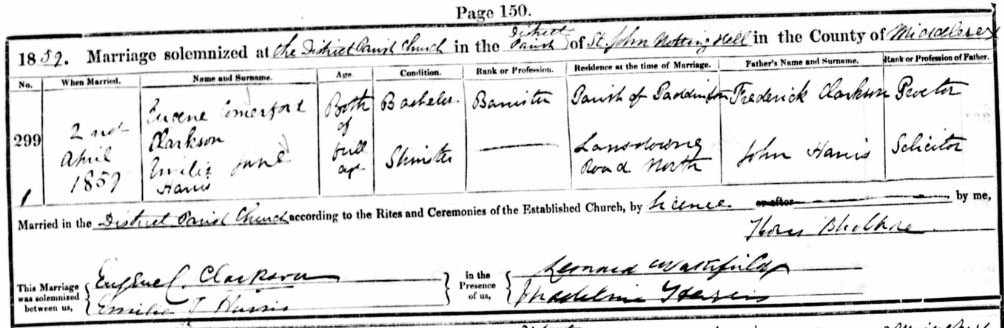 Page 150.
1859. Marriage solemnized at the District Parish Church in the District Parish of St. John Notting Hill in the County of Middlesex
No. When Married. Name and Surname. Age. Condition. Rank or Profession. Residence at the time of Marriage. Father's Name and Surname. Rank or Profession of Father.
299 2nd April 1859 Eugene Comerford Clarkson Both of full age Bachelor Barrister Parish of Paddington Frederick Clarkson Proctor
Emilia Jane Harris Spinster Lansdowne Road North John Harris Solicitor
Married in the District Parish Church according to the Rites and Ceremonies of the Established Church, by licence or after by me,
This Marriage was solemnized between us, Eugene C. Clarkson
Emilia J Harris
in the Presence of us, Leonard
Madeline Harris